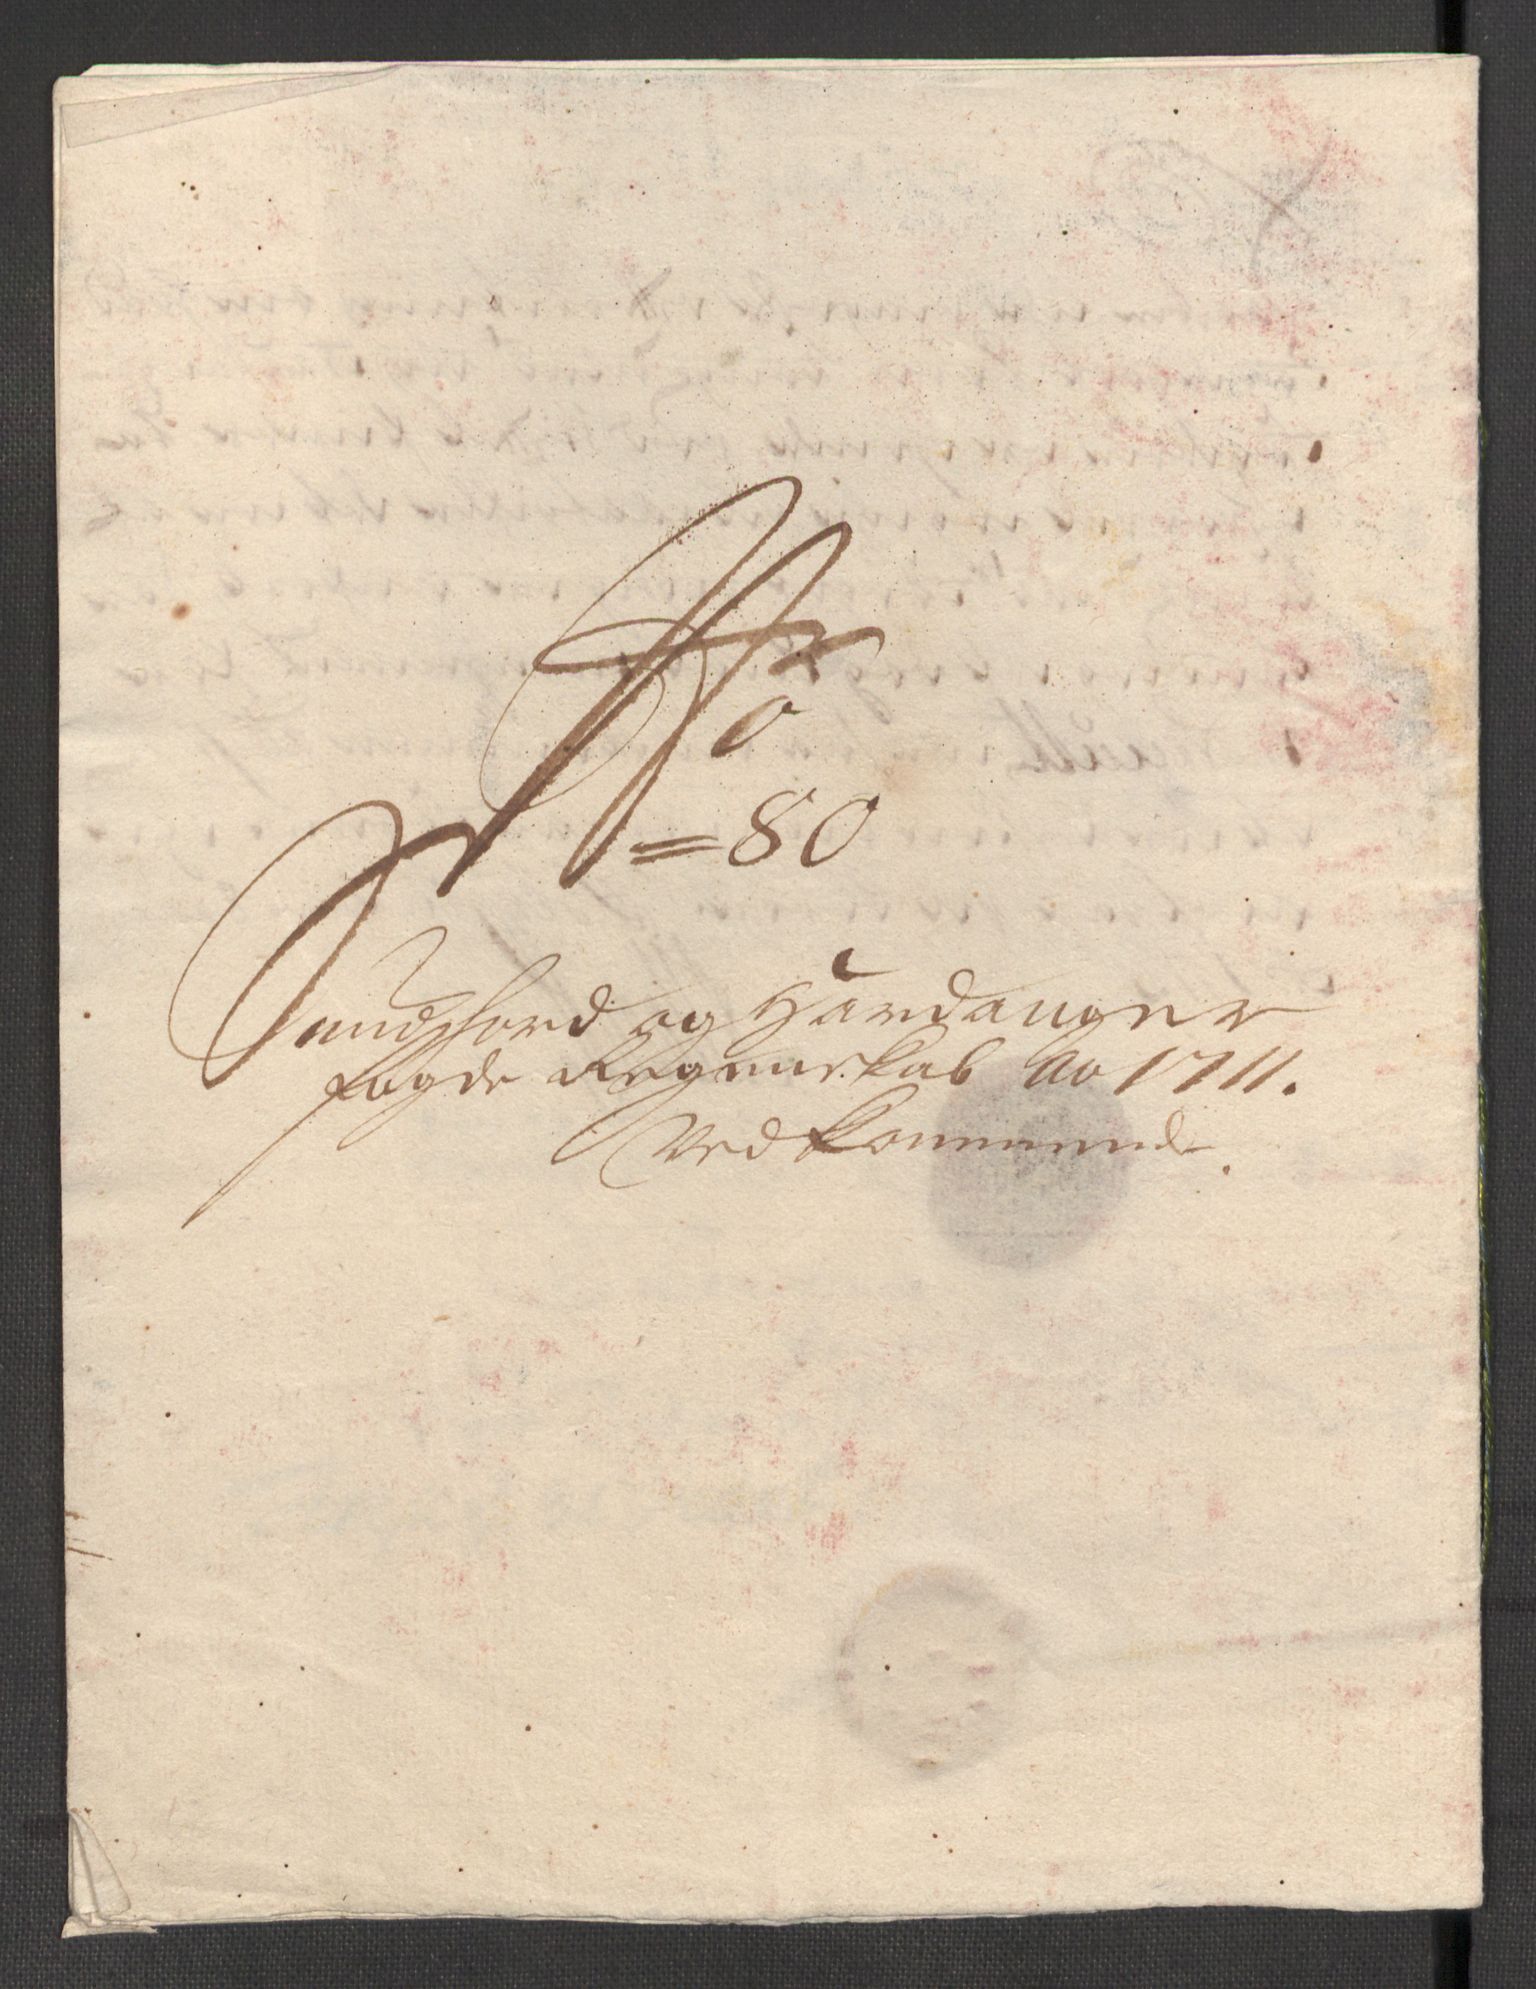 No
=80
Sundhord og Hardanger
fogde Regenskab Ao 1711.
Vedkommende.